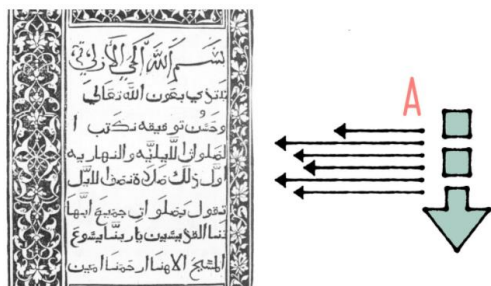 بسم الله الحي الازلي
نبتدي بعون الله تعالي
وحسن توفيقه نكتب ا
لصلوات الليليه والنهاريه
اول ذلك صلاة نصف الليل
تقول بصلواتي جميع ابها
تنا القديسين ياربنا يشوع
المسيح الاهنا ارحمنا امين
A